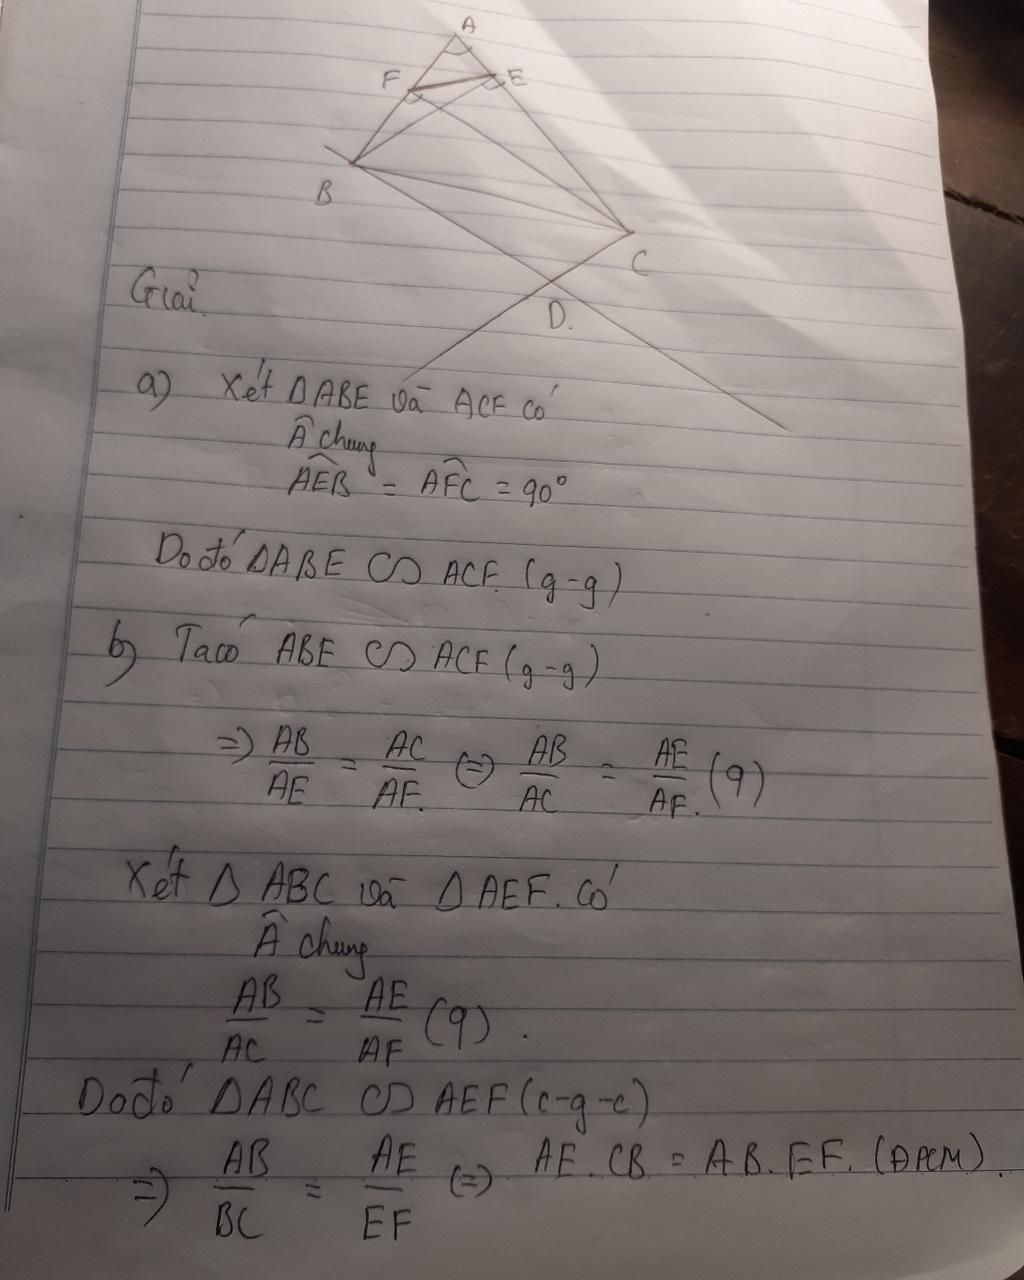 A
F
E
B
C
D.
Giải.
a) Xét ΔABE và ACF có
Â chung
AÊB = AF̂C = 90°
Do đó ΔABE ∽ ACF (g-g)
b) Ta có ABE ∽ ACF (g-g)
=> AB/AE = AC/AF. <=> AB/AC = AE/AF. (9)
Xét Δ ABC và Δ AEF. có
Â chung
AB/AC = AE/AF (9).
Do đó ΔABC ∽ AEF (c-g-c)
=> AB/BC = AE/EF <=> AE. CB = AB. EF. (ĐPCM).